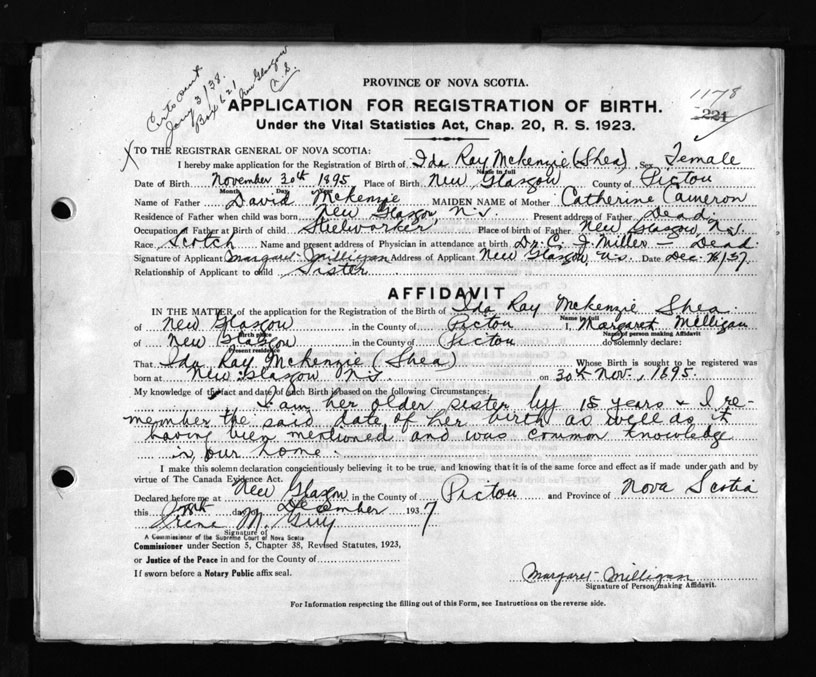 Jany 3/38.
Box 621
New Glasgow
N.S.
1178
221
PROVINCE OF NOVA SCOTIA.
APPLICATION FOR REGISTRATION OF BIRTH.
Under the Vital Statistics Act, Chap. 20, R. S. 1923.
X TO THE REGISTRAR GENERAL OF NOVA SCOTIA:
I hereby make application for the Registration of Birth of Ida Ray McKenzie (Shea) Sex Female
Name in full
Date of Birth November 30th 1895 Place of Birth New Glasgow County of Pictou
Month Day Year
Name of Father David McKenzie MAIDEN NAME of Mother Catherine Cameron
Residence of Father when child was born New Glasgow, N.S. Present address of Father Dead
Occupation of Father at Birth of child Steelworker Place of birth of Father New Glasgow, N.S.
Race Scotch Name and present address of Physician in attendance at birth Dr. C. J. Miller - Dead.
Signature of Applicant Margaret Milligan Address of Applicant New Glasgow, N.S. Date Dec. /37.
Relationship of Applicant to child Sister
AFFIDAVIT
IN THE MATTER of the application for the Registration of the Birth of Ida Ray McKenzie Shea.
Name in full
of New Glasgow in the County of Pictou I, Margaret Milligan
Birth place
Name of person making Affidavit
of New Glasgow in the County of Pictou do solemnly declare:
Present residence
That Ida Ray McKenzie (Shea) Whose Birth is sought to be registered was
born at New Glasgow N.S. on 30th Nov., 1895.
My knowledge of the fact and date of such Birth is based on the following Circumstances:
I am her older sister by 15 years & I re-
member the said date of her birth as well as it
having been mentioned and was common knowledge
in our home.
I make this solemn declaration conscientiously believing it to be true, and knowing that it is of the same force and effect as if made under oath and by
virtue of The Canada Evidence Act.
Declared before me at New Glasgow in the County of Pictou and Province of Nova Scotia
this day of December 1937
Irene M. Guy
Signature of
A Commissioner of the Supreme Court of Nova Scotia
Commissioner under Section 5, Chapter 38, Revised Statutes, 1923,
or Justice of the Peace in and for the County of
If sworn before a Notary Public affix seal.
Margaret Milligan
Signature of Person making Affidavit.
For Information respecting the filling out of this Form, see Instructions on the reverse side.